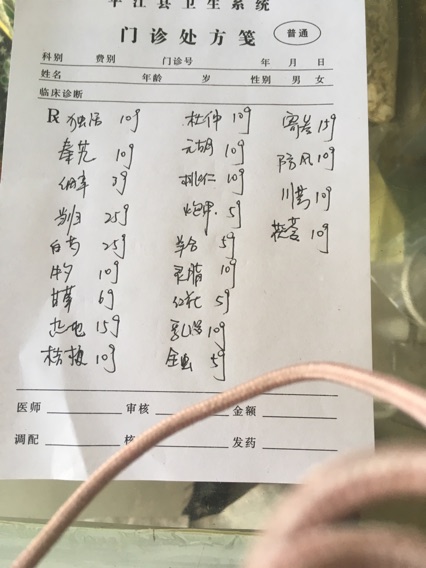 平江县卫生系统
门诊处方笺
普通
科别 费别 门诊号 年 月 日
姓名 年龄 岁 性别 男 女
临床诊断
R 独活 10g 杜仲 10g 寄生 15g
秦艽 10g 元胡 10g 防风 10g
细辛 3g 桃仁 10g 川芎 10g
当归 25g 炮甲 5g 10g
白芍 25g 草乌 5g
10g 灵脂 10g
甘草 6g 红花 5g
15g 乳没 10g
桂枝 10g 全虫 5g
医师 审核 金额
调配 核 发药